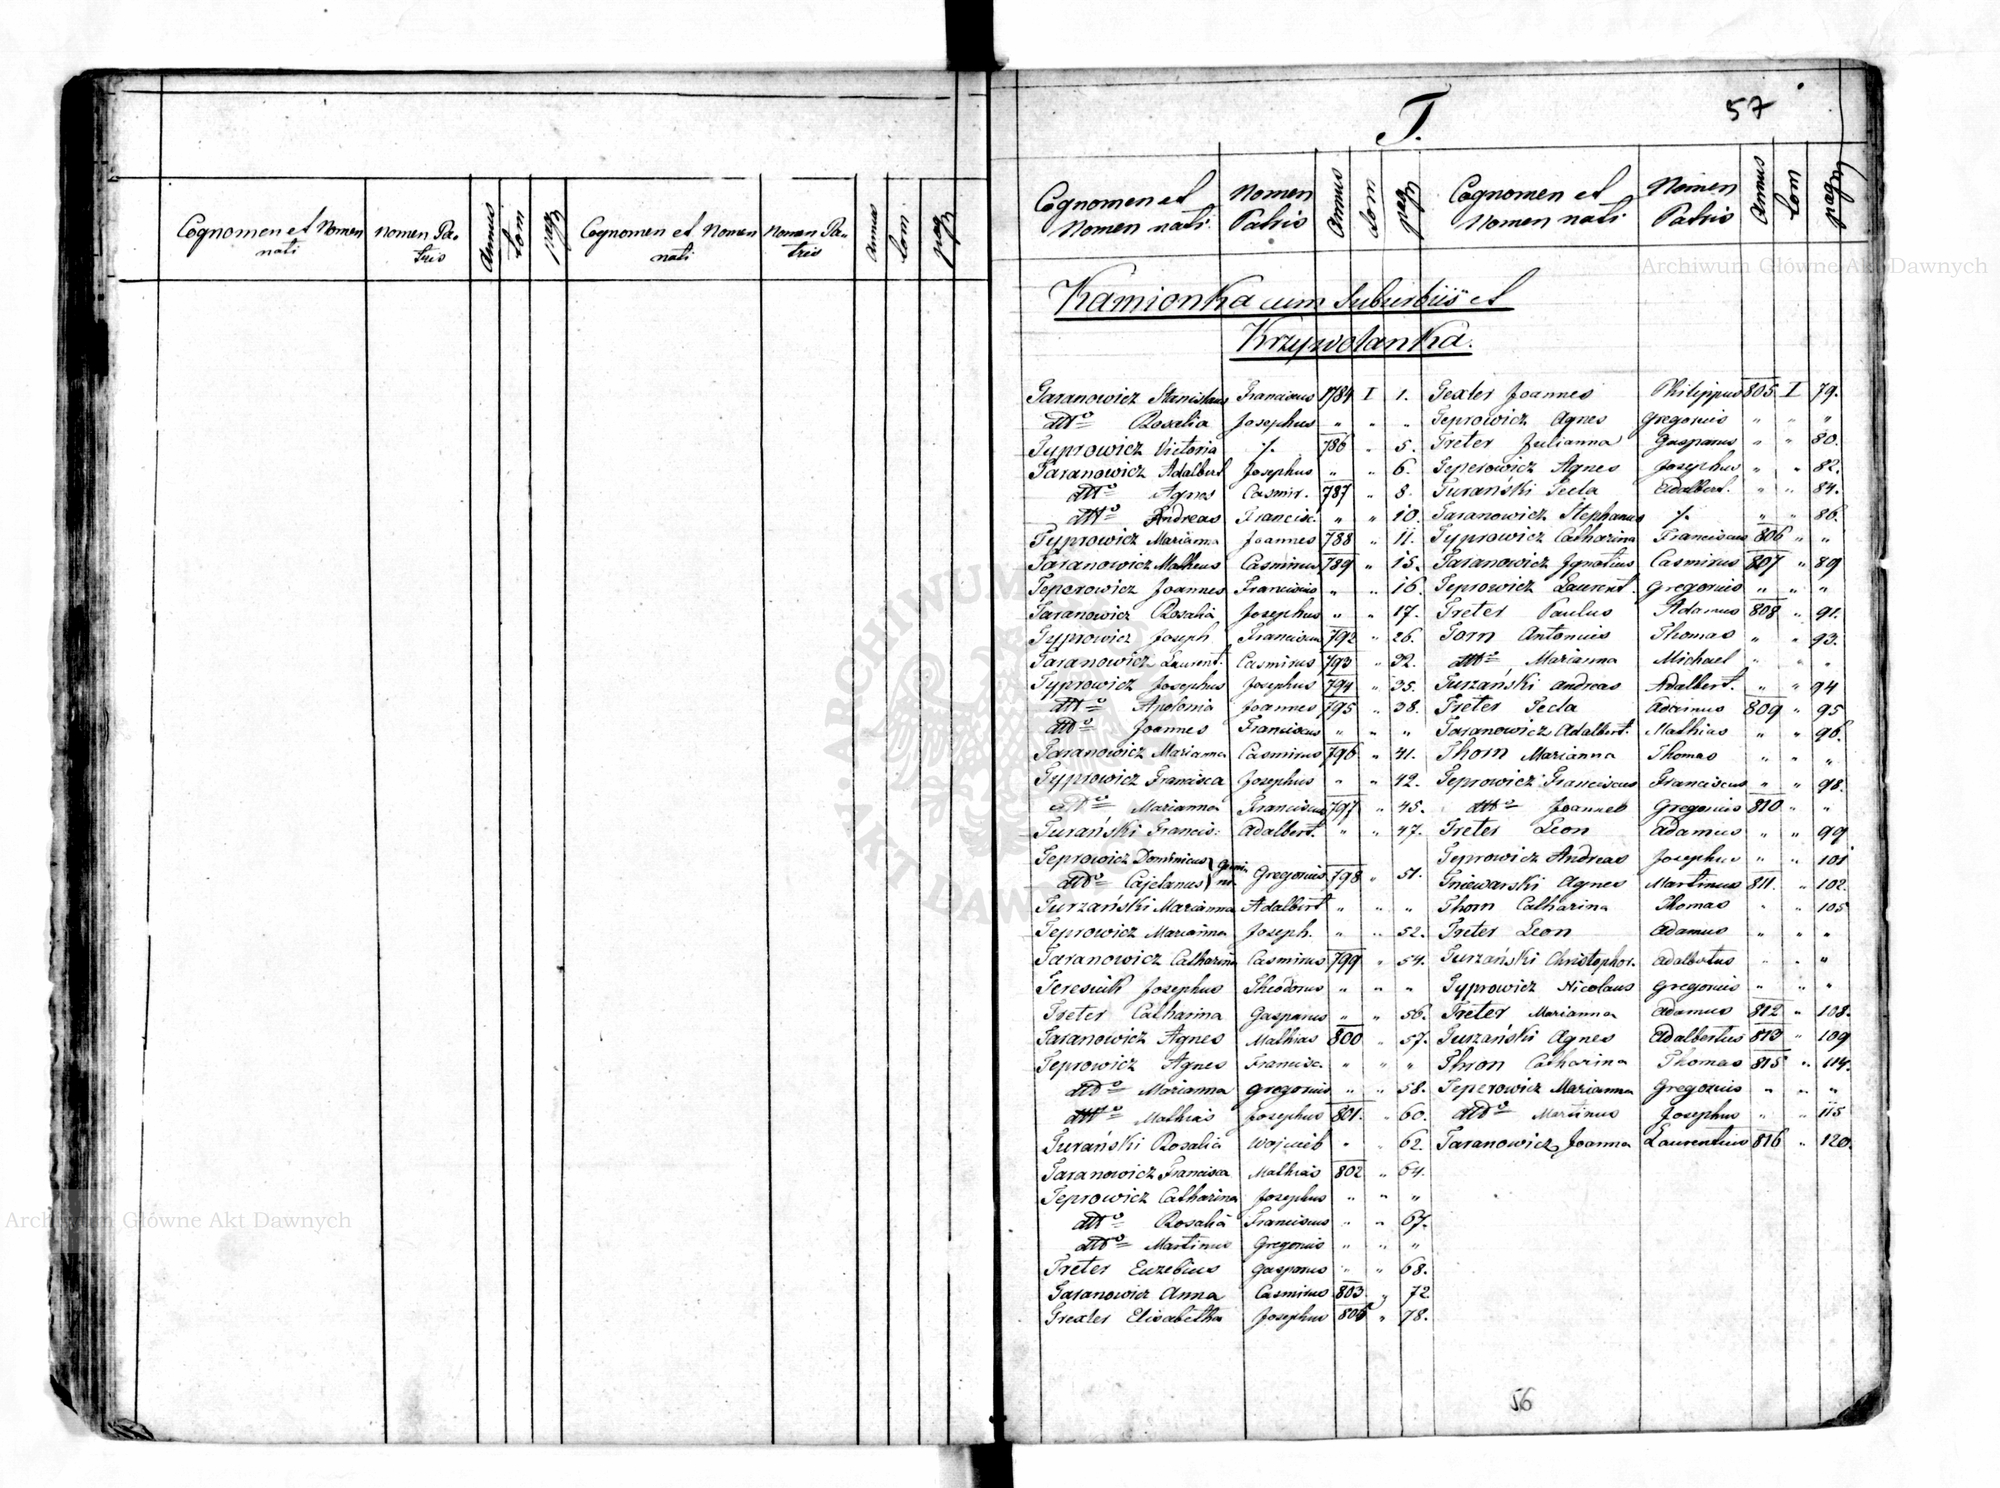 Cognomen et Nomen nati
Nomen Patris
Annus
tom
pag
Cognomen et Nomen nati
Nomen Patris
Annus
tom
pag
57
T.
Cognomen et Nomen nati
Nomen Patris
Annus
tom
pag
Cognomen et Nomen nati
Nomen Patris
Annus
tom
pag
Kamionka cum suburbiis et
Krzywolanka.
Taranowicz Stanislaus Franciscus 1784 I 1.
dtto Rosalia Josephus " " "
Typrowicz Victoria ./. 786 " 5.
Taranowicz Adalbert Josephus " " 6.
dtto Agnes Casmir. 787 " 8.
dtto Andreas Francisc. " " 10.
Typrowicz Marianna Joannes 788 " 11.
Taranowicz Matheus Casmirus 789 " 15.
Teperowicz Joannes Franciscus " " 16.
Taranowicz Rosalia Josephus " " 17.
Typrowicz Joseph Franciscus 792 " 26.
Taranowicz Laurent. Casmirus 793 " 32.
Typrowicz Josephus Josephus 794 " 35.
dtto Apolonia Joannes 795 " 38.
dtto Joannes Franciscus " " "
Taranowicz Marianna Casmirus 796 " 41.
Typrowicz Francisca Josephus " " 42.
dtto Marianna Franciscus 797 " 45.
Turański Francis: Adalbert. " " 47.
Teprowicz Dominicus
dtto Cajetanus Gemini Gregorius 798 " 51.
Turzański Marianna Adalbert " " "
Teprowicz Marianna Joseph. " " 52.
Taranowicz Catharina Casmirus 799 " 54.
Teresiuk Josephus Theodorus " " "
Treter Catharina Gasparus " " 56.
Taranowicz Agnes Mathias 800 " 57.
Teprowicz Agnes Francisc. " " "
dtto Marianna Gregorius " " 58.
dtto Mathias Josephus 801. " 60.
Turański Rosalia Wojcieh " " 62.
Taranowicz Francisca Mathias 802 " 64.
Teprowicz Catharina Josephus " " "
dtto Rosalia Franciscus " " 67.
dtto Martinus Gregorius " " "
Treter Euzebius Gasparus " " 68.
Taranowicz Anna Casmirus 803. " 72
Trexler Elisabetha Josephus " 78.
Texler Joannes Philippus 805 I 79.
Teprowicz Agnes Gregorius " " "
Treter Julianna Gasparus " " 80.
Teperowicz Agnes Josephus " " 82.
Turański Tecla Adalbert. " " 84.
Taranowicz Stephanus ./. " " 86.
Typrowicz Catharina Franciscus 806 " "
Taranowicz Ignatius Casmirus 807 " 89
Teprowicz Laurent. Gregorius " " "
Treter Paulus Adamus 808 " 91.
Torn Antonius Thomas " " 93.
dtto Marianna Michael " " "
Turzański Andreas Adalbert. " " 94
Treter Tecla Adamus 809 " 95
Taranowicz Adalbert. Mathias " " 96.
Thorn Marianna Thomas " " "
Teprowicz Franciscus Franciscus " " 98.
dtto Joannes Gregorius 810 " "
Treter Leon Adamus " " 99
Teprowicz Andreas Josephus " " 101
Tniewarski Agnes Martinus 811. " 102.
Thorn Catharina Thomas " " 105
Treter Leon Adamus " " "
Turzański Christophor. Adalbertus " " "
Typrowicz Nicolaus Gregorius " " "
Treter Marianna Adamus 812 " 108.
Turzański Agnes Adalbertus 813 " 109
Thron Catharina Thomas 815 " 114.
Teperowicz Marianna Gregorius " " "
dtto Martinus Josephus " " 115
Taranowicz Joanna Laurentius 816 " 120.
56
Archiwum Główne Akt Dawnych
Archiwum Główne Akt Dawnych
ARCHIWUM GŁÓWNE AKT DAWNYCH